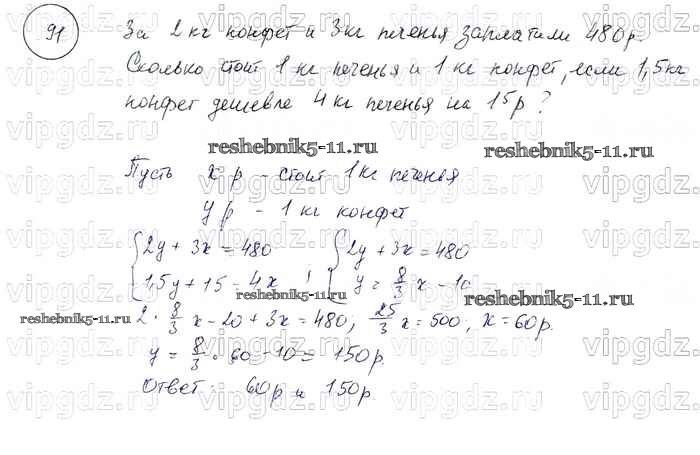 91
За 2 кг конфет и 3 кг печенья заплатили 480 р.
Сколько стоит 1 кг печенья и 1 кг конфет, если 1,5 кг
конфет дешевле 4 кг печенья на 15 р?
reshebnik5-11.ru
reshebnik5-11.ru
Пусть x р - стоит 1 кг печенья
y р - 1 кг конфет
{2y + 3x = 480 {2y + 3x = 480
{1,5y + 15 = 4x ; {y = 8/3 x - 10
reshebnik5-11.ru
reshebnik5-11.ru
reshebnik5-11.ru
2 · 8/3 x - 20 + 3x = 480; 25/3 x = 500; x = 60 р.
y = 8/3 · 60 - 10 = 150 р.
Ответ: 60 р и 150 р.
vipgdz.ru